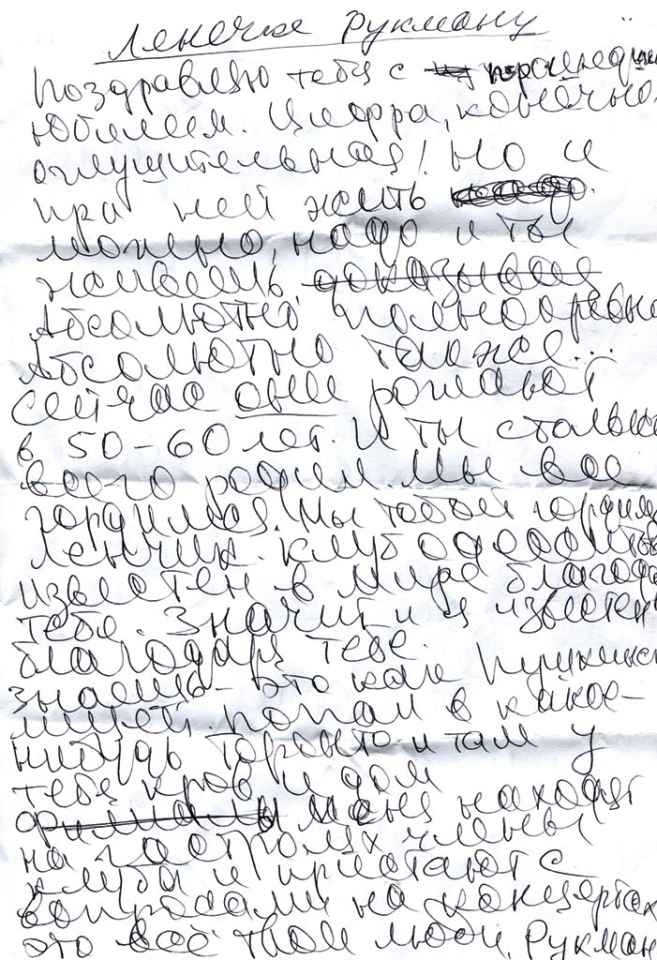 Ленечке Рукману
Поздравляю тебя с прошедшим
юбилеем. Цифра, конечно.
оглушительная! Но и
при ней жить
можно, надо и ты
живёшь. доказывая
Абсолютно полноправн
Абсолютно также...
Сейчас они рожают
в 50-60 лет. И ты столько
всего родил. Мы все
гордимся. Мы тобой гордимс
Ленчик. Клуб одесситов
известен в мире благода
тебе. Значит и я известен
благодаря тебе.
знаешь - это как Пушкинс
лицей. попал в какой-
нибудь Торонто и там у
тебя кров и дом
филиалы меня находят
на гастролях члены
клуба и пристают с
вопросами на концертах
это всё твои люди, Рукман